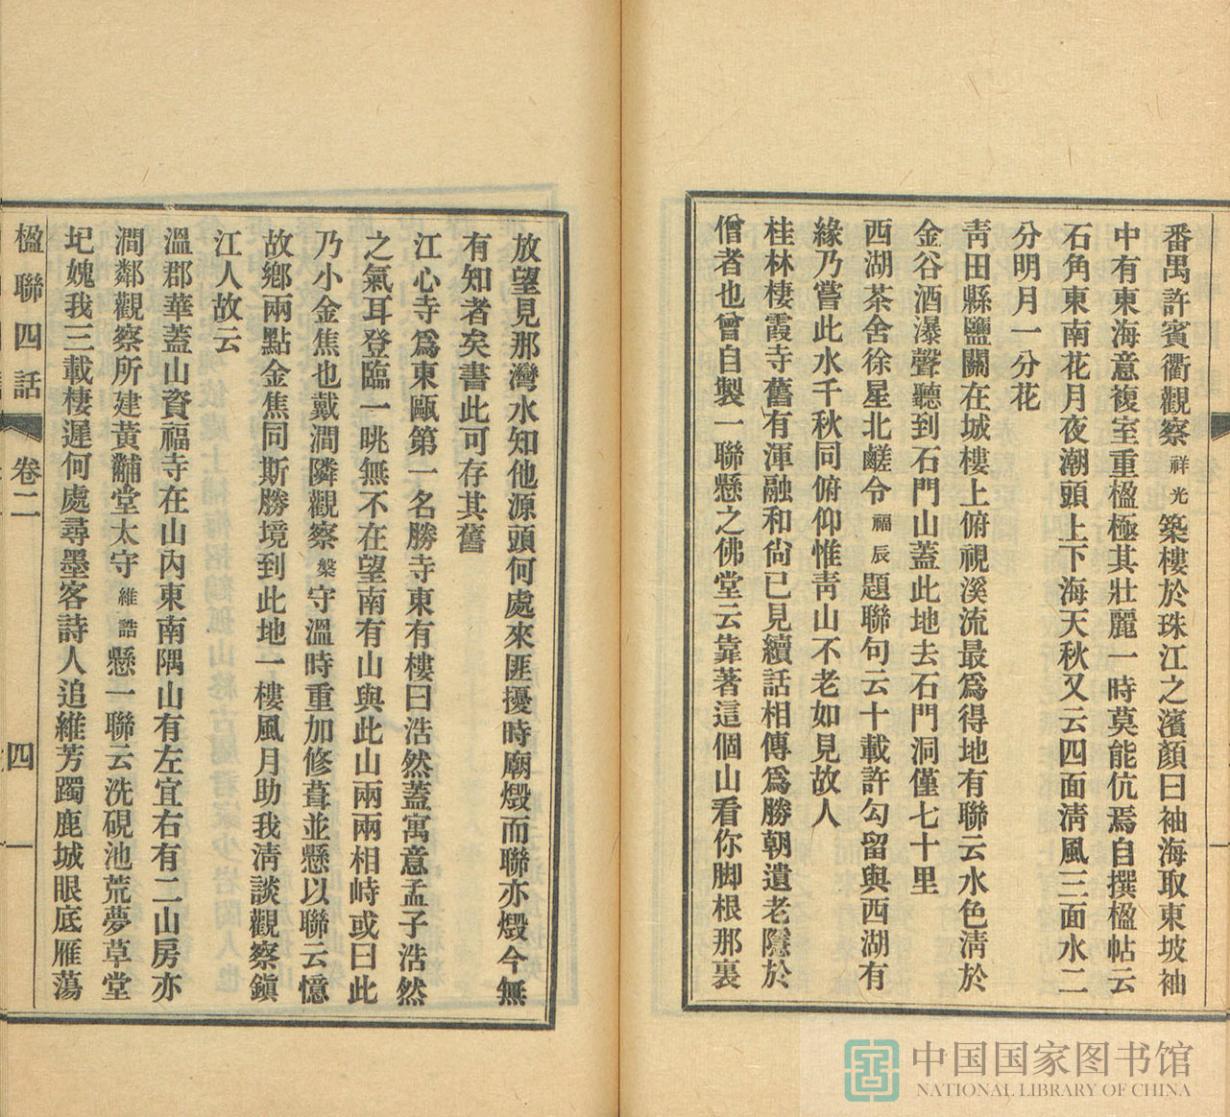 番禺許賓衢觀察祥光築樓於珠江之濱顏曰袖海取東坡袖
中有東海意複室重楹極其壯麗一時莫能伉焉自撰楹帖云
石角東南花月夜潮頭上下海天秋又云四面淸風三面水二
分明月一分花
靑田縣鹽關在城樓上俯視溪流最爲得地有聯云水色淸於
金谷酒瀑聲聽到石門山蓋此地去石門洞僅七十里
西湖茶舍徐星北鹺令福辰題聯句云十載許勾留與西湖有
緣乃嘗此水千秋同俯仰惟靑山不老如見故人
桂林棲霞寺舊有渾融和尙已見續話相傳爲勝朝遺老隱於
僧者也曾自製一聯懸之佛堂云靠著這個山看你脚根那裏
放望見那灣水知他源頭何處來匪擾時廟燬而聯亦燬今無
有知者矣書此可存其舊
江心寺爲東甌第一名勝寺東有樓曰浩然蓋寓意孟子浩然
之氣耳登臨一眺無不在望南有山與此山兩兩相峙或曰此
乃小金焦也戴澗隣觀察槃守溫時重加修葺並懸以聯云憶
故鄕兩點金焦同斯勝境到此地一樓風月助我淸談觀察鎭
江人故云
溫郡華蓋山資福寺在山內東南隅山有左宜右有二山房亦
澗鄰觀察所建黃黼堂太守維誥懸一聯云洗硯池荒夢草堂
圮媿我三載棲遲何處尋墨客詩人追維芳躅鹿城眼底雁蕩
楹聯四話 卷二 四
中国国家图书馆
NATIONAL LIBRARY OF CHINA